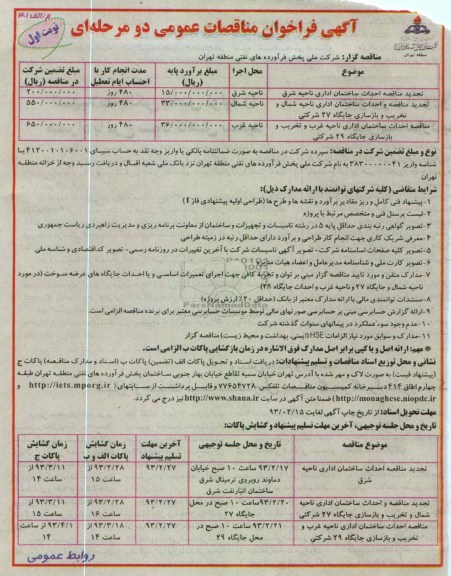 آگهی فراخوان مناقصات عمومی دو مرحله‌ای
نوبت اول
مناقصه گزار: شرکت ملی پخش فرآورده های نفتی منطقه تهران
موضوع | محل اجرا | مبلغ برآورد پایه (ریال) | مدت انجام کار با احتساب ایام تعطیل | مبلغ تضمین شرکت در مناقصه (ریال)
تجدید مناقصه احداث ساختمان اداری ناحیه شرق | ناحیه شرق | ۱۵/۰۰۰/۰۰۰/۰۰۰ | ۴۸۰ روز | ۳۰۰/۰۰۰/۰۰۰
تجدید مناقصه و احداث ساختمان اداری ناحیه شمال و تخریب و بازسازی جایگاه ۲۷ شرکتی | ناحیه شمال | ۳۲/۰۰۰/۰۰۰/۰۰۰ | ۴۸۰ روز | ۵۵۰/۰۰۰/۰۰۰
مناقصه احداث ساختمان اداری ناحیه غرب و تخریب و بازسازی جایگاه ۲۹ شرکتی | ناحیه غرب | ۳۶/۰۰۰/۰۰۰/۰۰۰ | ۴۸۰ روز | ۶۵۰/۰۰۰/۰۰۰
نوع و مبلغ تضمین شرکت در مناقصه: سپرده شرکت در مناقصه به صورت ضمانتنامه بانکی یا واریز وجه نقد به حساب سیبای ۴۱۲۰۰۱۰۱۰۶۰۰۱ با
شناسه واریز ۳۸۳۰۰۰۰۰۰۴۱ به نام شرکت ملی پخش فرآورده های نفتی منطقه تهران نزد بانک ملی شعبه اقبال و دریافت رسید وجه از خزانه منطقه
تهران
شرایط متقاضی (کلیه شرکتهای توانمند با ارائه مدارک ذیل):
۱-پیشنهاد فنی کامل و ریز مقادیر برآورد و نقشه ها و طرح ها (طراحی اولیه پیشنهادی فاز ۱)
۲-لیست پرسنل فنی و متخصص مرتبط با پروژه
۳-تصویر گواهی رتبه بندی حداقل پایه ۵ در رشته تاسیسات و تجهیزات و ساختمان از معاونت برنامه ریزی و مدیریت راهبردی ریاست جمهوری
۴-معرفی شریک کاری جهت انجام کار طراحی و برآورد دارای حداقل رتبه در زمینه طراحی
۵-تصویر کلیه صفحات اساسنامه شرکت- تصویر آگهی تاسیسات شرکت با آخرین تغییرات در روزنامه رسمی- تصویر کداقتصادی و شناسه ملی
۶-تصویر کارت ملی و شناسنامه مدیرعامل و اعضاء هیات مدیره
۷-مدارک متقن و مورد تایید مناقصه گزار مبنی بر توان و تجربه کافی جهت اجرای تعمیرات اساسی و یا احداث جایگاه های عرضه سوخت (در مورد
ناحیه شمال و جایگاه ۲۷ و ناحیه غرب و احداث جایگاه ۲۹)
۸-مستندات توانمندی مالی با ارائه مدارک معتبر از بانک (حداقل ۲۰٪ ارزش پروژه)
۹-ارائه گزارش حسابرسی مبنی بر حسابرسی صورتهای مالی توسط موسسات حسابرسی معتبر برای برنده مناقصه الزامی است.
۱۰-عدم وجود سوء عملکرد در پیمانهای سنوات گذشته شرکت
۱۱-مدارک و سوابق مورد نیاز الزامات HSE (ایمنی، بهداشت و محیط زیست) مناقصه گزار
* مهم: ارائه اصل و یا کپی برابر اصل مدارک فوق الاشاره در زمان بازگشایی پاکات ب الزامی است.
نشانی و محل توزیع اسناد مناقصات و تسلیم پیشنهادات: دریافت اسناد و تحویل پاکات الف (تضمین) پاکات ب (اسناد و مدارک مناقصه) پاکات ج
(پیشنهاد قیمت) به صورت لاک و مهر شده با آدرس تهران خیابان سمیه تقاطع خیابان بهار جنوبی ساختمان پخش فرآورده های نفتی منطقه تهران طبقه
چهارم اطاق ۴۱۴ دبیرخانه کمیسیون مناقصات تلفکس ۷۷۶۵۴۷۲۸ وقابل برداشت از سایتهای( http://iets.mporg.ir و
http://monaghese.niopdc.ir) ضمنا متن آگهی در سایت http://www.shana.ir نیز درج می گردد.
مهلت تحویل اسناد: از تاریخ چاپ آگهی لغایت ۹۳/۰۲/۱۵
تاریخ و محل جلسه توجیهی، آخرین مهلت تسلیم پیشنهاد و گشایش پاکات:
موضوع مناقصه | تاریخ و محل جلسه توجیهی | آخرین مهلت تسلیم پیشنهاد | زمان گشایش پاکات الف و ب | زمان گشایش پاکات ج
تجدید مناقصه احداث ساختمان اداری ناحیه شرق | ۹۳/۲/۱۷ ساعت ۱۰ صبح خیابان دماوند روبروی ترمینال شرق ساختمان انبارنفت شرق | ۹۳/۲/۲۷ | ۹۳/۲/۲۸ از ساعت ۱۵ | ۹۳/۳/۱۱ از ساعت ۱۴
تجدید مناقصه و احداث ساختمان اداری ناحیه شمال و تخریب و بازسازی جایگاه ۲۷ شرکتی | ۹۳/۲/۲۰ ساعت ۱۰ صبح در محل جایگاه ۲۷ | ۹۳/۲/۲۷ | ۹۳/۲/۲۸ از ساعت ۱۶ | ۹۳/۳/۱۱ از ساعت ۱۵
مناقصه احداث ساختمان اداری ناحیه غرب و تخریب و بازسازی جایگاه ۲۹ شرکتی | ۹۳/۲/۲۱ ساعت ۱۰ صبح در محل جایگاه ۲۹ | ۹۳/۲/۲۷ | ۹۳/۳/۱۸ از ساعت ۱۴ | ۹۳/۴/۱ از ساعت ۱۴
روابط عمومی